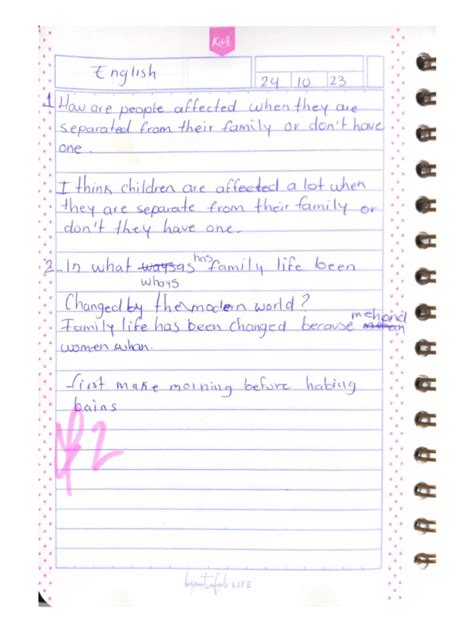 KM
English
24 10 23
1. How are people affected when they are
separated from their family or don't have
one.
I think children are affected a lot when
they are separate from their family or
don't they have one.
2. In what ways has family life been
whays
Changed by the modern world?
Family life has been changed because
women whan
first make morning before habing
bains
LIFE